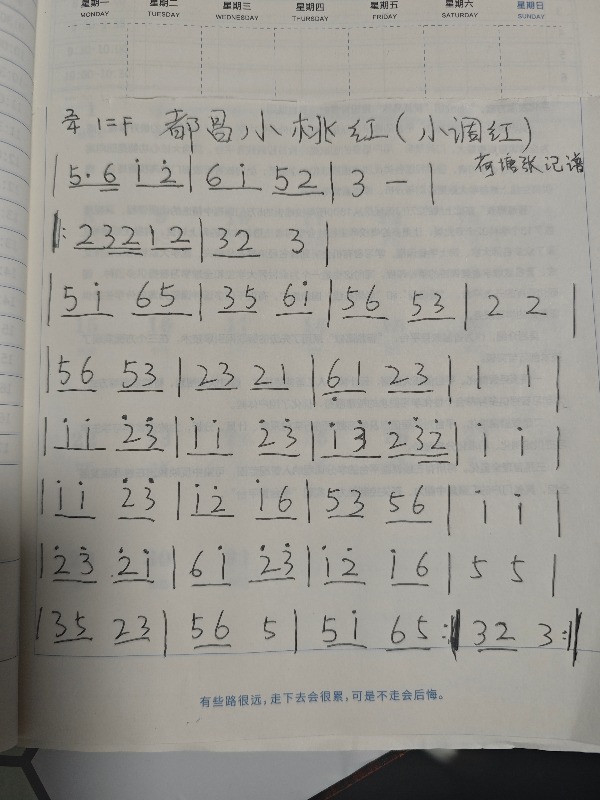 星期一 星期二 星期三 星期四 星期五 星期六 星期日
MONDAY TUESDAY WEDNESDAY THURSDAY FRIDAY SATURDAY SUNDAY
2/4 1=F 都昌小桃红(小调红)
荷塘张记谱
| 5·6 i̇ 2̇ | 6 i̇ 5 2 | 3 — |
‖: 2 3 2 1 2 | 3 2 3 |
| 5 i̇ 6 5 | 3 5 6 i̇ | 5 6 5 3 | 2 2 |
| 5 6 5 3 | 2 3 2 1 | 6̣ 1 2 3 | 1 1 |
| i̇ i̇ 2̇ 3̇ | i̇ i̇ 2̇ 3̇ | i̇ 3̇ 2̇ 3̇ 2̇ | i̇ i̇ |
| i̇ i̇ 2̇ 3̇ | i̇ 2̇ i̇ 6 | 5 3 5 6 | i̇ i̇ |
| 2̇ 3̇ 2̇ i̇ | 6 i̇ 2̇ 3̇ | i̇ 2̇ i̇ 6 | 5 5 |
| 3 5 2 3 | 5 6 5 | 5 i̇ 6 5 :‖ 3 2 3 :‖
有些路很远,走下去会很累,可是不走会后悔。